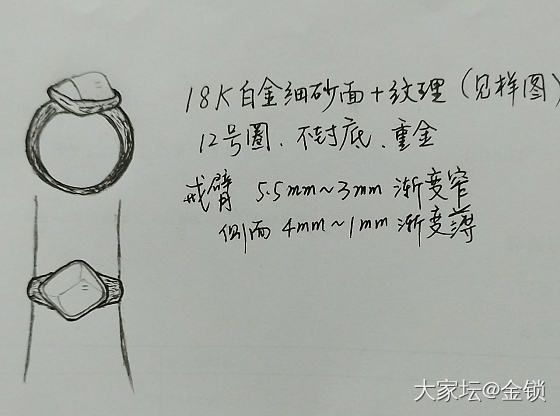 18K白金细砂面+纹理(见样图)
12号圈、不封底、重金
戒臂 5.5mm~3mm 渐变窄
侧面 4mm~1mm 渐变薄
大家坛@金锁